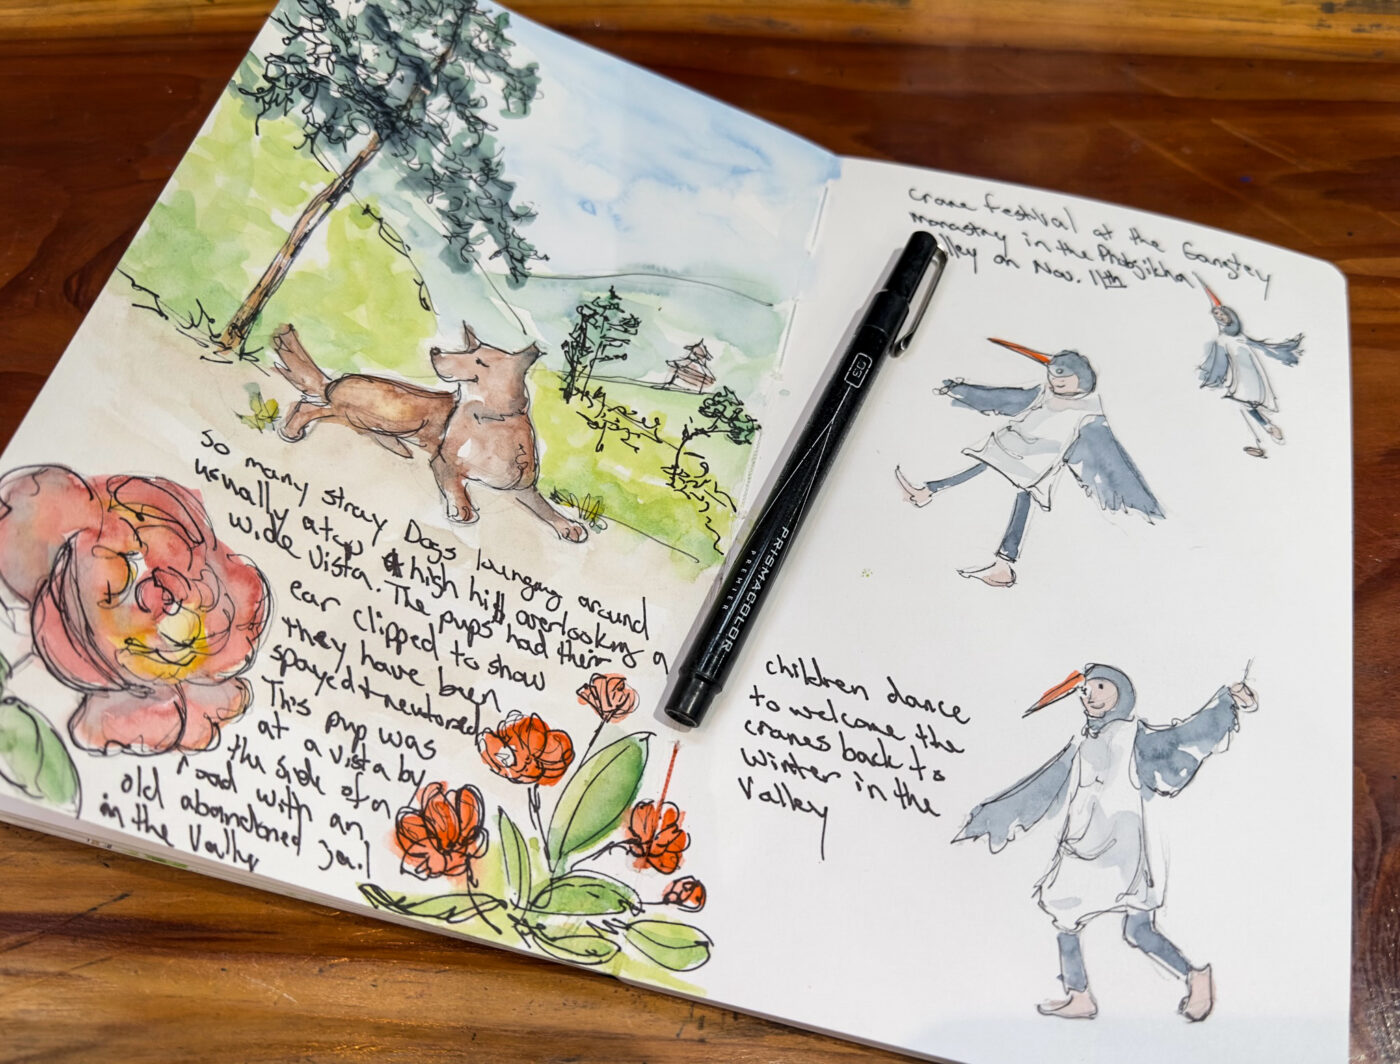 So many stray Dogs lounging around
usually atop high hill overlooking a
wide vista. The pups had their
ear clipped to show
they have been
spayed + neutored
This pup was
at a vista by
the side of a
road with an
old abandoned jail
in the Valley
crane festival at the Gangtey
monastry in the Phobjikha
lley on Nov. 11th
03
PRISMACOLOR
PREMIER
children dance
to welcome the
cranes back to
Winter in the
Valley